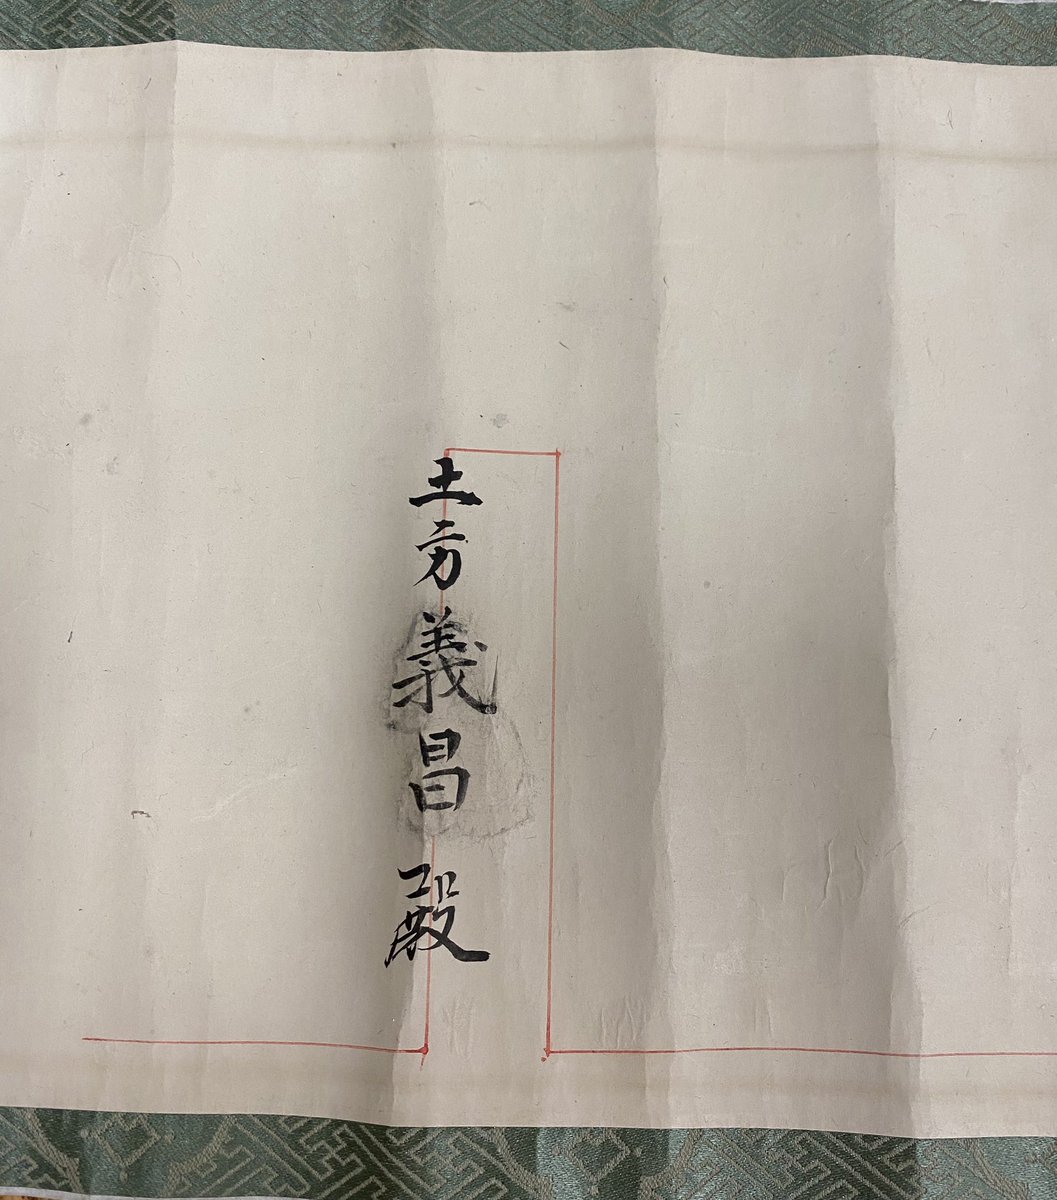 土方義昌殿